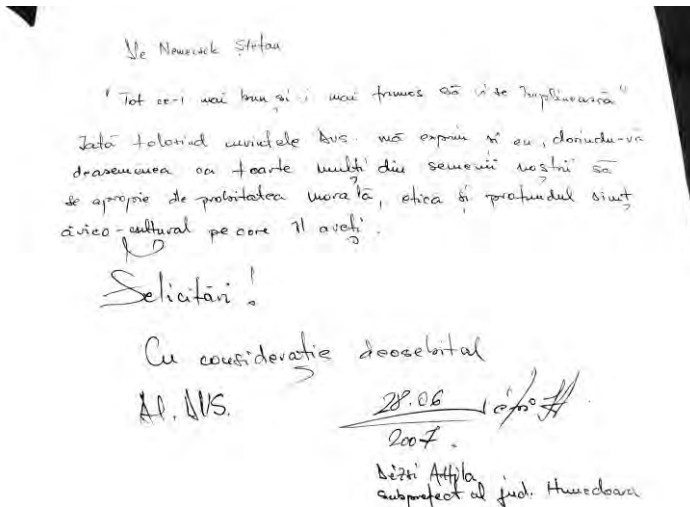 D-le Nemecsek Ștefan
"Tot ce-i mai bun și-i mai frumos să vi se împlinească"
Iată folosind cuvintele DVS. mă exprim și eu, dorindu-vă
deasemenea ca foarte mulți din semenii noștri să
se apropie de probitatea morală, etica și profundul simț
civico-cultural pe care îl aveți.
Felicitări!
Cu considerație deosebită
Al. DVS.
28.06
2007.
Dézsi Attila
Subprefect al jud. Hunedoara